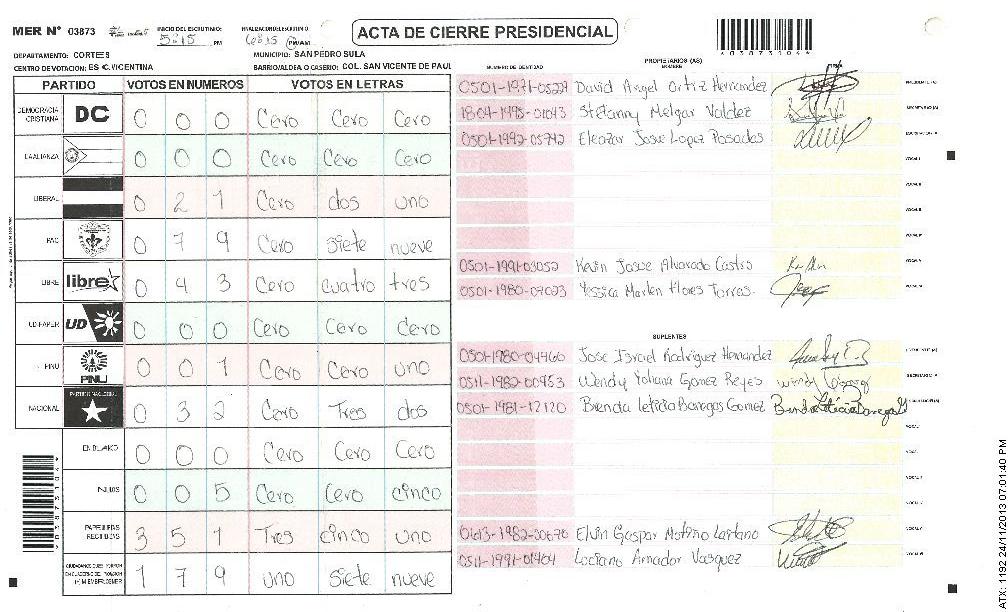 MER Nº 03873
INICIO DEL ESCRUTINIO: 5:15 PM
FINALIZACION ESCRUTINIO: PM/AM
ACTA DE CIERRE PRESIDENCIAL
DEPARTAMENTO: CORTES
MUNICIPIO: SAN PEDRO SULA
CENTRO DE VOTACION: ES C.VICENTINA
BARRIO/ALDEA O CASERIO: COL. SAN VICENTE DE PAUL
PARTIDO VOTOS EN NUMEROS VOTOS EN LETRAS
DEMOCRACIA CRISTIANA DC 0 0 0 Cero Cero Cero
0 0 0 Cero Cero Cero
LIBERAL 0 2 1 Cero dos uno
PAC 0 7 9 Cero siete nueve
LIBRE libre 0 4 3 Cero cuatro tres
UD-FAPER UD 0 0 0 Cero Cero Cero
PINU PINU 0 0 1 Cero Cero uno
NACIONAL PARTIDO NACIONAL 0 3 2 Cero Tres dos
EN BLANCO 0 0 0 Cero Cero Cero
NULOS 0 0 5 Cero Cero cinco
PAPELETAS RECIBIDAS 3 5 1 Tres cinco uno
1 7 9 uno siete nueve
*03873104*
NUMERO DE IDENTIDAD
PROPIETARIOS (AS)
NOMBRE
0501-1971-05229 David Angel Ortiz Hernandez PRESIDENTE (A)
1804-1995-01043 Stefanny Melgar Valdez SECRETARIO (A)
0501-1992-05742 Eleazar Josue Lopez Posadas
VOCAL I
VOCAL II
VOCAL III
VOCAL IV
0501-1991-03052 Kevin Josue Alvarado Castro VOCAL V
0501-1980-07023 Yessica Marlen Flores Torres VOCAL VI
SUPLENTES
0501-1980-04460 Jose Israel Rodriguez Hernandez PRESIDENTE (A)
0511-1982-00453 Wendy Yoliana Gomez Reyes SECRETARIO (A)
0501-1981-12120 Brenda Leticia Banegas Gomez
0613-1982-00670 Elvin Gaspar Merino Laitano
0511-1991-01404 Luciano Amador Vasquez
ATX: 1192 24/11/2013 07:01:40 PM